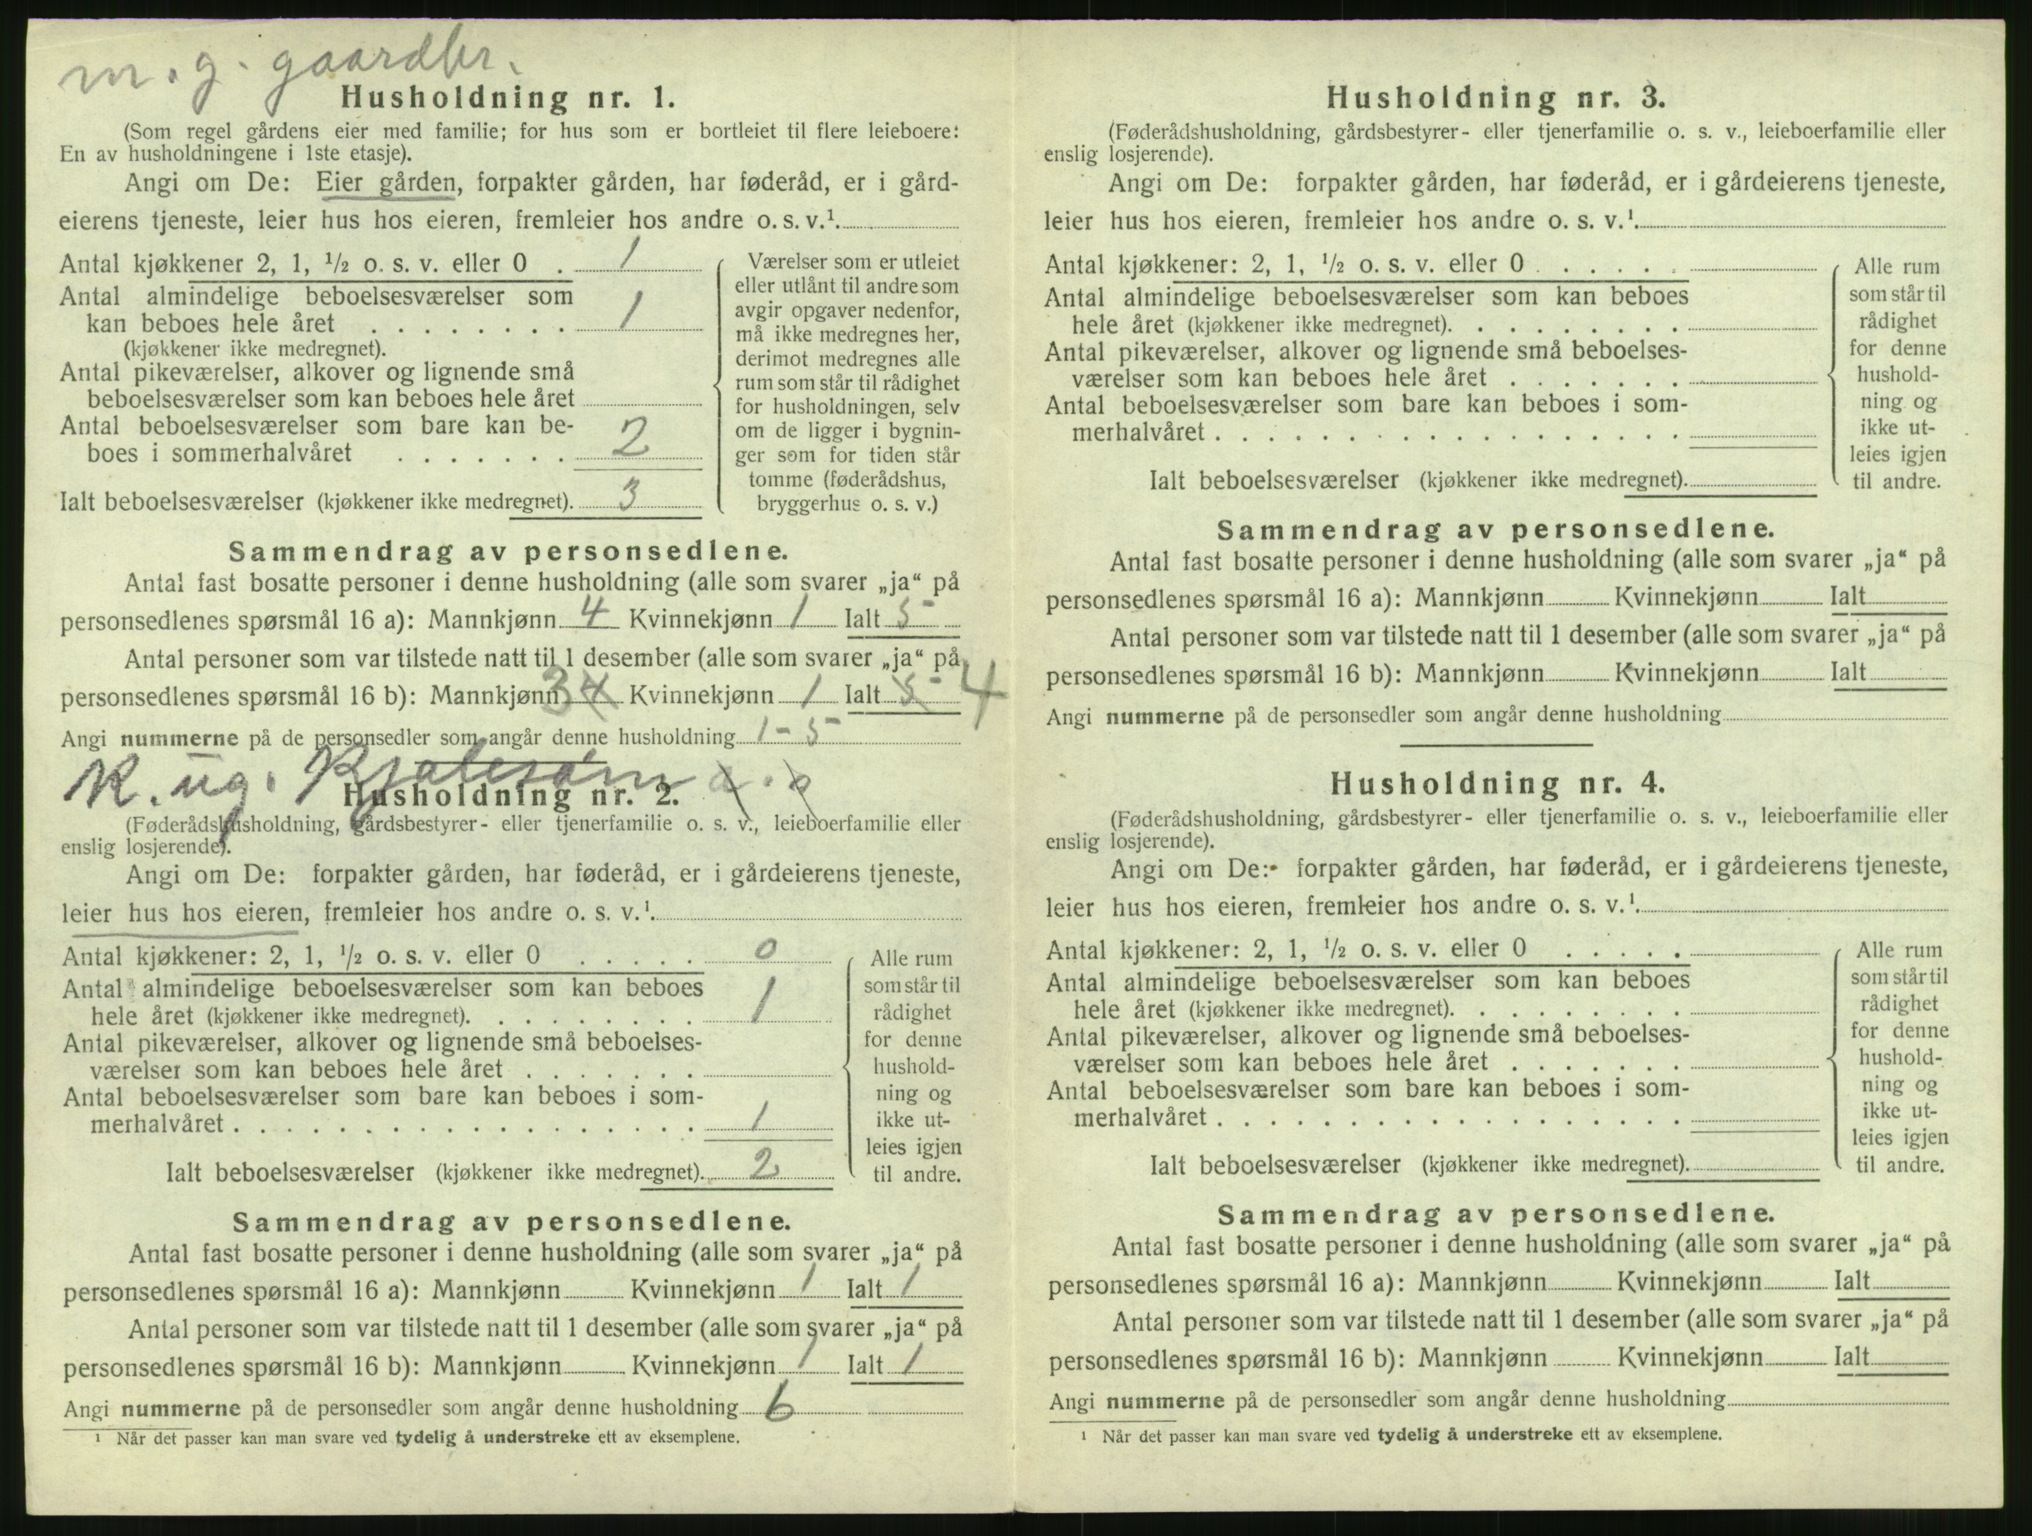 m. g. gaardbr.
Husholdning nr. 1.
(Som regel gårdens eier med familie; for hus som er bortleiet til flere leieboere:
En av husholdningene i 1ste etasje).
Angi om De: Eier gården, forpakter gården, har føderåd, er i gård-
eierens tjeneste, leier hus hos eieren, fremleier hos andre o. s. v.¹
Antal kjøkkener 2, 1, ½ o. s. v. eller 0 . 1
Antal almindelige beboelsesværelser som
kan beboes hele året . . . . . . . . 1
(kjøkkener ikke medregnet).
Antal pikeværelser, alkover og lignende små
beboelsesværelser som kan beboes hele året
Antal beboelsesværelser som bare kan be-
boes i sommerhalvåret . . . . . . . 2
Ialt beboelsesværelser (kjøkkener ikke medregnet). 3
Værelser som er utleiet
eller utlånt til andre som
avgir opgaver nedenfor,
må ikke medregnes her,
derimot medregnes alle
rum som står til rådighet
for husholdningen, selv
om de ligger i bygnin-
ger som for tiden står
tomme (føderådshus,
bryggerhus o. s. v.)
Sammendrag av personsedlene.
Antal fast bosatte personer i denne husholdning (alle som svarer „ja“ på
personsedlenes spørsmål 16 a): Mannkjønn 4 Kvinnekjønn 1 Ialt 5
Antal personer som var tilstede natt til 1 desember (alle som svarer „ja“ på
personsedlenes spørsmål 16 b): Mannkjønn 3 4 Kvinnekjønn 1 Ialt 5 4
Angi nummerne på de personsedler som angår denne husholdning 1-5
K. ug.
Husholdning nr. 2.
(Føderådshusholdning, gårdsbestyrer- eller tjenerfamilie o. s. v., leieboerfamilie eller
enslig losjerende).
Angi om De: forpakter gården, har føderåd, er i gårdeierens tjeneste,
leier hus hos eieren, fremleier hos andre o. s. v.¹
Antal kjøkkener: 2, 1, ½ o. s. v. eller 0 . . . . . 0
Antal almindelige beboelsesværelser som kan beboes
hele året (kjøkkener ikke medregnet). . . . . . . . . 1
Antal pikeværelser, alkover og lignende små beboelses-
værelser som kan beboes hele året . . . . . . .
Antal beboelsesværelser som bare kan beboes i som-
merhalvåret . . . . . . . . . . . . . . . . . . 1
Ialt beboelsesværelser (kjøkkener ikke medregnet). 2
Alle rum
som står til
rådighet
for denne
hushold-
ning og
ikke ut-
leies igjen
til andre.
Sammendrag av personsedlene.
Antal fast bosatte personer i denne husholdning (alle som svarer „ja“ på
personsedlenes spørsmål 16 a): Mannkjønn Kvinnekjønn 1 Ialt 1
Antal personer som var tilstede natt til 1 desember (alle som svarer „ja“ på
personsedlenes spørsmål 16 b): Mannkjønn Kvinnekjønn 1 Ialt 1
Angi nummerne på de personsedler som angår denne husholdning 6
¹ Når det passer kan man svare ved tydelig å understreke ett av eksemplene.
Husholdning nr. 3.
(Føderådshusholdning, gårdsbestyrer- eller tjenerfamilie o. s. v., leieboerfamilie eller
enslig losjerende).
Angi om De: forpakter gården, har føderåd, er i gårdeierens tjeneste,
leier hus hos eieren, fremleier hos andre o. s. v.¹
Antal kjøkkener: 2, 1, ½ o. s. v. eller 0 . . . . .
Antal almindelige beboelsesværelser som kan beboes
hele året (kjøkkener ikke medregnet). . . . . . . . .
Antal pikeværelser, alkover og lignende små beboelses-
værelser som kan beboes hele året . . . . . . .
Antal beboelsesværelser som bare kan beboes i som-
merhalvåret . . . . . . . . . . . . . . . . . .
Ialt beboelsesværelser (kjøkkener ikke medregnet).
Alle rum
som står til
rådighet
for denne
hushold-
ning og
ikke ut-
leies igjen
til andre.
Sammendrag av personsedlene.
Antal fast bosatte personer i denne husholdning (alle som svarer „ja“ på
personsedlenes spørsmål 16 a): Mannkjønn Kvinnekjønn Ialt
Antal personer som var tilstede natt til 1 desember (alle som svarer „ja“ på
personsedlenes spørsmål 16 b): Mannkjønn Kvinnekjønn Ialt
Angi nummerne på de personsedler som angår denne husholdning
Husholdning nr. 4.
(Føderådshusholdning, gårdsbestyrer- eller tjenerfamilie o. s. v., leieboerfamilie eller
enslig losjerende).
Angi om De: forpakter gården, har føderåd, er i gårdeierens tjeneste,
leier hus hos eieren, fremleier hos andre o. s. v.¹
Antal kjøkkener: 2, 1, ½ o. s. v. eller 0 . . . . .
Antal almindelige beboelsesværelser som kan beboes
hele året (kjøkkener ikke medregnet). . . . . . . . .
Antal pikeværelser, alkover og lignende små beboelses-
værelser som kan beboes hele året . . . . . . .
Antal beboelsesværelser som bare kan beboes i som-
merhalvåret . . . . . . . . . . . . . . . . . .
Ialt beboelsesværelser (kjøkkener ikke medregnet).
Alle rum
som står til
rådighet
for denne
hushold-
ning og
ikke ut-
leies igjen
til andre.
Sammendrag av personsedlene.
Antal fast bosatte personer i denne husholdning (alle som svarer „ja“ på
personsedlenes spørsmål 16 a): Mannkjønn Kvinnekjønn Ialt
Antal personer som var tilstede natt til 1 desember (alle som svarer „ja“ på
personsedlenes spørsmål 16 b): Mannkjønn Kvinnekjønn Ialt
Angi nummerne på de personsedler som angår denne husholdning
¹ Når det passer kan man svare ved tydelig å understreke ett av eksemplene.